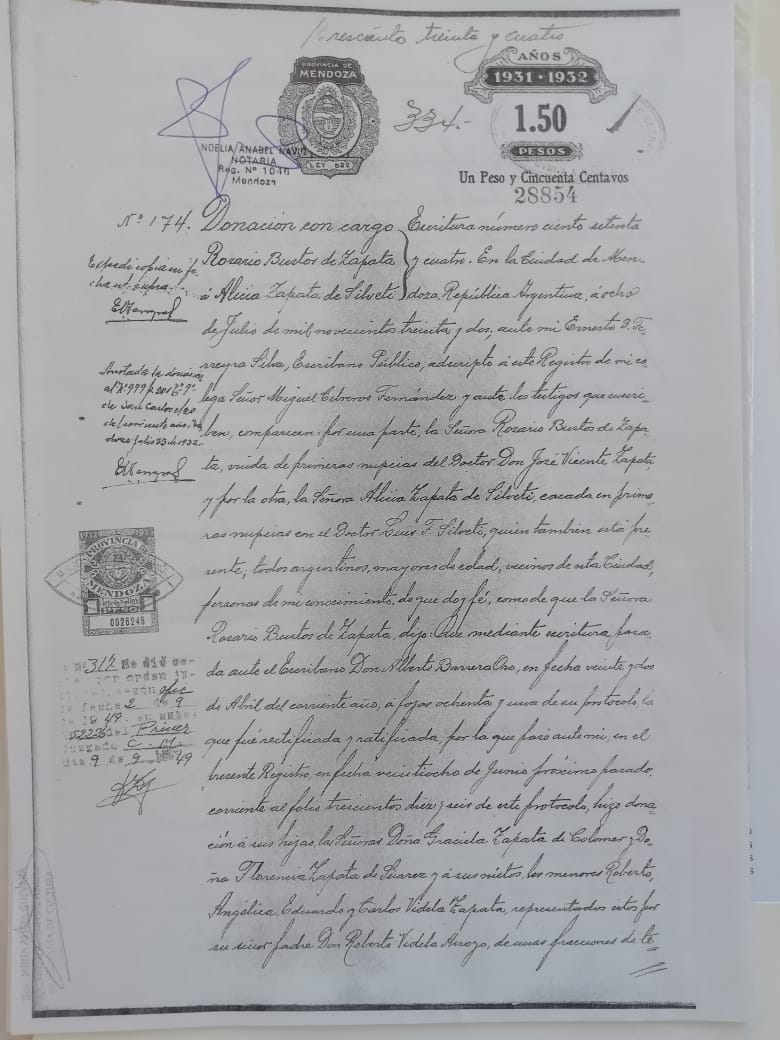 Trescientos treinta y cuatro
PROVINCIA DE
MENDOZA
LEY 622
AÑOS
1931 - 1932
1.50
PESOS
Un Peso y Cincuenta Centavos
28854
334.-
NOELIA ANABEL
NOTARIA
Reg. Nº 1046
Mendoza
Nº 174. Donación con cargo
Rosario Bustos de Zapata
á Alicia Zapata de Silveti
Escritura número ciento setenta
y cuatro. En la Ciudad de Men-
doza, República Argentina, á ocho
de Julio de mil novecientos treinta y dos; ante mi Ernesto D. Fe-
rreyra Silva, Escribano Público, adscripto á este Registro de mi co-
lega Señor Miguel Fernández y ante los testigos que suscri-
ben, comparecen: por una parte, la Señora Rosario Bustos de Zapa-
ta, viuda de primeras nupcias del Doctor Don José Vicente Zapata,
y por la otra, la Señora Alicia Zapata de Silveti, casada en prime-
ras nupcias con el Doctor Luis F. Silveti, quien también está pre-
sente; todos argentinos, mayores de edad, vecinos de esta Ciudad,
personas de mi conocimiento, de que doy fé, como de que la Señora
Rosario Bustos de Zapata, dijo: Que mediante escritura pasa-
da ante el Escribano Don Alberto Barrera Oro, en fecha veinte y dos
de Abril del corriente año, á fojas ochenta y una de su protocolo, la
que fué rectificada y ratificada, por la que pasó ante mi, en el
presente Registro, en fecha veintiocho de Junio próximo pasado,
corriente al folio trescientos diez y seis de este protocolo, hizo dona-
ción á sus hijas, las Señoras Doña Graciela Zapata de Colomer y Do-
ña Florencia Zapata de Suarez y á sus nietos, los menores Roberto,
Angélica, Eduardo y Carlos Videla Zapata, representados éstos por
su señor padre Don Roberto Videla Arroyo, de unas fracciones de te-
Expedí copia en fe-
cha ut-supra.
Anotada la donación
de San Carlos
del corriente año. Men-
doza Julio 23 de 1932.
1932
PROVINCIA DE
MENDOZA
1 PESO 1
0026248
Nº 312
por orden
según ofic
fecha 2 de 9
de 1949
del Primer
Juzgado C.
día 9 de 9 49
DE CULTURA